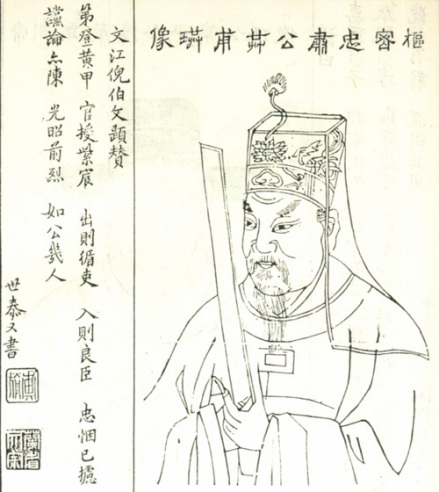 樞密忠肅公甫像
文江倪伯文題贊
第登黃甲 官授紫宸 出則循吏 入則良臣 忠悃已攄
讜論亦陳 光昭前烈 如公幾人
世泰又書